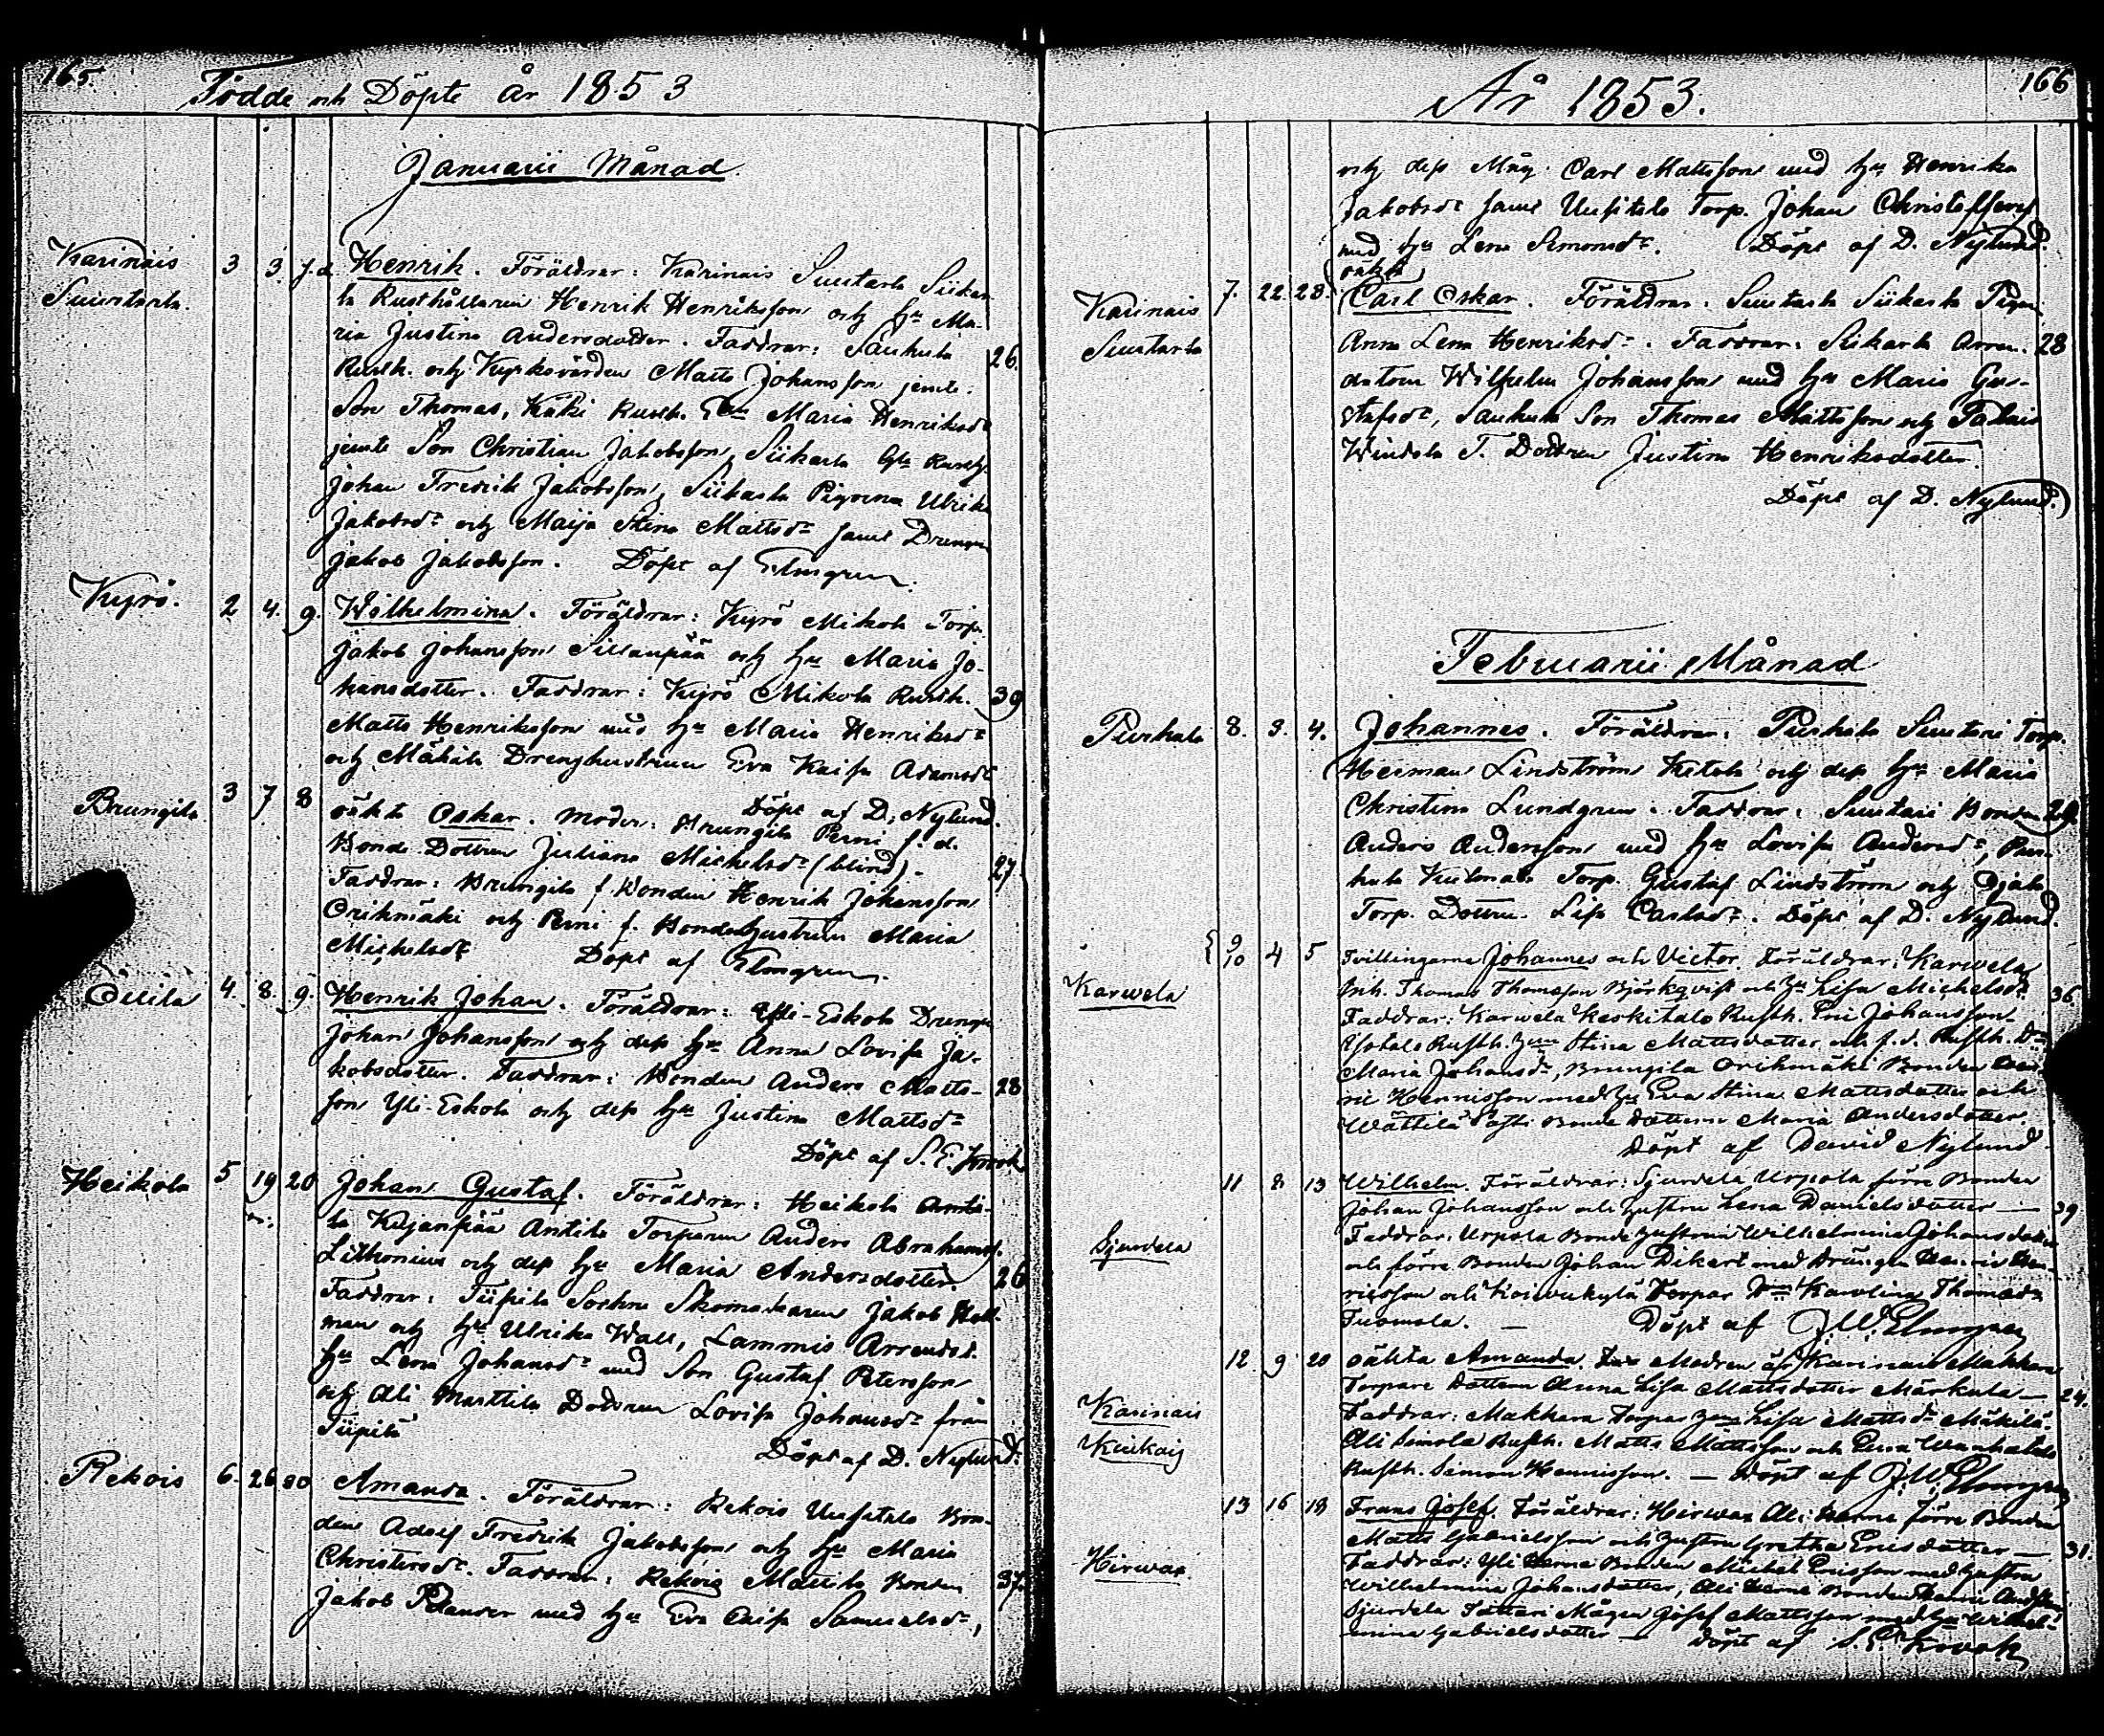 165.
Födde och Döpte År 1853
Januarii Månad.
Karinais
Suurtarla.
3 3. 7.d. Henrik. Föräldrar: Karinais Suutarla Siikar-
la Rusthållaren Henrik Henriksson och hu Ma-
ria Justina Andersdotter. Faddrar: Sauhula 26.
Rusth. och Kyrkovärden Matts Johansson jemte
Son Thomas, Käki Rusth. Enk. Maria Henriksdr
jemte Son Christian Jakobsson, Siikarla Rusth.
Johan Fredrik Jakobsson, Siikarla Pigorna Ulrika
Jakobsdr och Maija Stina Mattsdr samt Drengen
Jakob Jakobsson. Döpt af Elmgren.
Kyrö. 2 4. 9. Wilhelmina. Föräldrar: Kyrö Mikola Torp.
Jakob Johansson Sillanpää och hu Maria Jo-
hansdotter. Faddrar: Kyrö Mikola Rusth. 39
Matts Henriksson med hu Maria Henriksdr
och Mäkilä Drenghustrun Eva Kaisa Adamsdr
Döpt af D. Nylund.
Brungila 3 7 8 oäkta Oskar. Moder: Brungila Perni f.d.
Bonde Dottren Juliana Michelsdr (blind). 27.
Faddrar: Brungila f. Bonden Henrik Johansson
Orikmäki och Perni f. Bondehustrun Maria
Michelsdr Döpt af Elmgren.
4. 8. 9. Henrik Johan. Föräldrar: Yli-Eskola Drengen
Johan Johansson och dess hu Anna Lovisa Ja-
kobsdotter. Faddrar: Bonden Anders Matts- 28
son Yli-Eskola och dess hu Justina Mattsdr
Döpt af S. E. Krook
Heikola 5 19 20 Johan Gustaf. Föräldrar: Heikola Antti-
la Kujanpää Antila Torparen Anders Abrahamss.
Lithonius och dess hu Maria Andersdotter. 26
Faddrar: Tiipilä Sockne Skomakaren Jakob
man och hu Ulrika Wall, Lammis Arrendat.
hu Lena Johansdr med Son Gustaf Petersson
och Ali Marttila Dottren Lovisa Johansdr från
Tiipilä Döpt af D. Nylund.
Rekois 6. 26 30 Amanda. Föräldrar: Rekois Uusitalo Bon-
den Adolf Fredrik Jakobsson och hu Maria
Christersdr. Faddrar: Rekois Mattila Bonden 37.
Jakob Pelander med hu Eva Caisa Samuelsdr,
År 1853. 166
och dess Måg Carl Mattsson med hu Henrika
Jakobsdr samt Uusitalo Torp. Johan Christofferss.
med hu Lena Simonsdr. Döpt af D. Nylund.
Karinais
Suutarla
7. 22. 23. oäkta
Carl Oskar. Föräldrar: Suutarla Siikarla Pigan
Anna Lena Henriksdr. Faddrar: Siikarla Arren- 28
datorn Wilhelm Johansson med hu Maria Gus-
tafsdr, Sauhula Son Thomas Mattsson och
T. Dottren Justina Henriksdotter.
Döpt af D. Nylund.
Februarii Månad
Purhala 8. 3. 4. Johannes. Föräldrar: Purhala Suutari Torp.
Herman Lindström Ketola och dess hu Maria
Christina Lundgren. Faddrar: Suutari Bonden
Anders Andersson med hu Lovisa Andersdr, Pur-
hala Torp. Gustaf Lindström och
Torp. Dottren Lisa Carlsdr. Döpt af D. Nylund.
Karwela
9 10 4 5 Tvillingarna Johannes och Victor. Föräldrar: Karwela
Inh. Thomas Thomasson Björkqvist och hu Lisa Michelsdr 36.
Faddrar: Karwela Keskitalo Rusth. Eric Johansson
Ylitalo Rusth. hu Stina Mattsdotter och f.d. Rusth. Dr
Maria Johansdr, Brungila Orikmäki Bonden Hen-
ric Henrisson med hu Eva Stina Mattsdotter och
Wättilä Bonde Dottern Maria Andersdotter.
Döpt af David Nylund.
Sjurdela
11 8 13 Wilhelm. Föräldrar: Sjurdela Urpola förre Bonden
Johan Johansson och hustru Lena Danielsdotter — 39
Faddrar: Urpola Bonde hustrun Wilhelmina Johansdotter
och förre Bonden Johan Dikert med Drängen Henric Hen-
ricsson och Koivukylä Torpar Dr Karolina Thomasdr
Tuomola. — Döpt af J. W. Elmgren
Karinais
Kiukais
12. 9 20 oäkta Amanda. Modren är Karinais Makkara
Torpare Dottern Anna Lisa Mattsdotter Märkula — 24.
Faddrar: Makkara Torpar hu Lisa Mattsdr Mäkilä
Ali Simola Rusth. Matts Mattsson och Wanhatalo
Rusth. Simon Hennisson. — Döpt af J. W. Elmgren
Hirwas.
13 16 18 Frans Josef. Föräldrar: Hirwas Ali Herne förre Bonden
Matts Gabrielsson och hustru Gretha Ericsdotter — 31.
Faddrar: Yli Herne Bonden Michel Ericsson med hustru
Wilhelmina Johansdotter, Ali Herne Bonden
Sjurdela Tattari Mågen Josef Mattsson med hu Wilhel-
mina Gabrielsdotter — Döpt af S. E. Krook